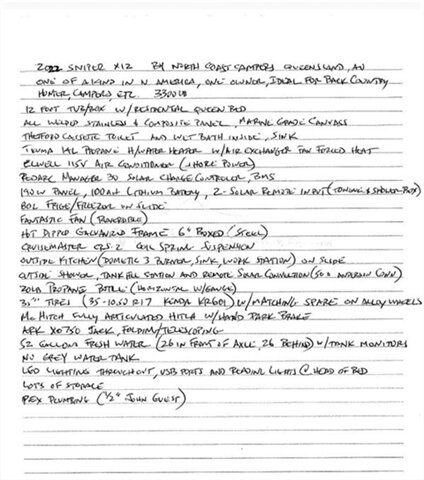 2022 SNIPER X12 BY NORTH COAST CAMPERS QUEENSLAND, AU
ONE OF A KIND IN N AMERICA, ONE OWNER, IDEAL FOR BACK COUNTRY
HUNTER, CAMPERS, ETC. 3300 LB
12 FOOT TUB/BOX W/ RESIDENTIAL QUEEN BED
ALL WELDED STAINLESS & COMPOSITE PANEL, MARINE GRADE CANVASS
THETFORD CASSETTE TOILET AND WET BATH INSIDE, SINK
TRUMA 14L PROPANE H/WATER HEATER W/ AIR EXCHANGER FAN FORCED HEAT
115V AIR CONDITIONER (SHORE POWER)
REDARC MANAGER 30 SOLAR CHARGE CONTROLLER, BMS
190W PANEL, 100AH LITHIUM BATTERY, 2-SOLAR REMOTE INPUT (TONGUE & SHOWER BOX)
80L FRIGE/FREEZER ON SLIDE
FANTASTIC FAN (REVERSIBLE)
HOT DIPPED GALVANIZED FRAME 6" BOXED (STEEL)
CRUISEMASTER CRS-2 COIL SPRING SUSPENSION
OUTSIDE KITCHEN (DOMETIC 3 BURNER, SINK, WORK STATION) ON SLIDE
OUTSIDE SHOWER, TANK FILL STATION AND REMOTE SOLAR CONNECTION (50A ANDERSON CONN)
20LB PROPANE BOTTLE (HORIZONTAL W/GAUGE)
35" TIRES (35-10.50 R17 KENDA KR601) W/ MATCHING SPARE ON ALLOY WHEELS
MC HITCH FULLY ARTICULATED HITCH W/ HAND PARK BRAKE
ARK XO750 JACK, FOLDING/TELESCOPING
52 GALLON FRESH WATER (26 IN FRONT OF AXLE, 26 BEHIND) W/ TANK MONITORS
NO GREY WATER TANK
LED LIGHTING THROUGHOUT, USB PORTS AND READING LIGHTS @ HEAD OF BED
LOTS OF STORAGE
PEX PLUMBING (1/2" JOHN GUEST)